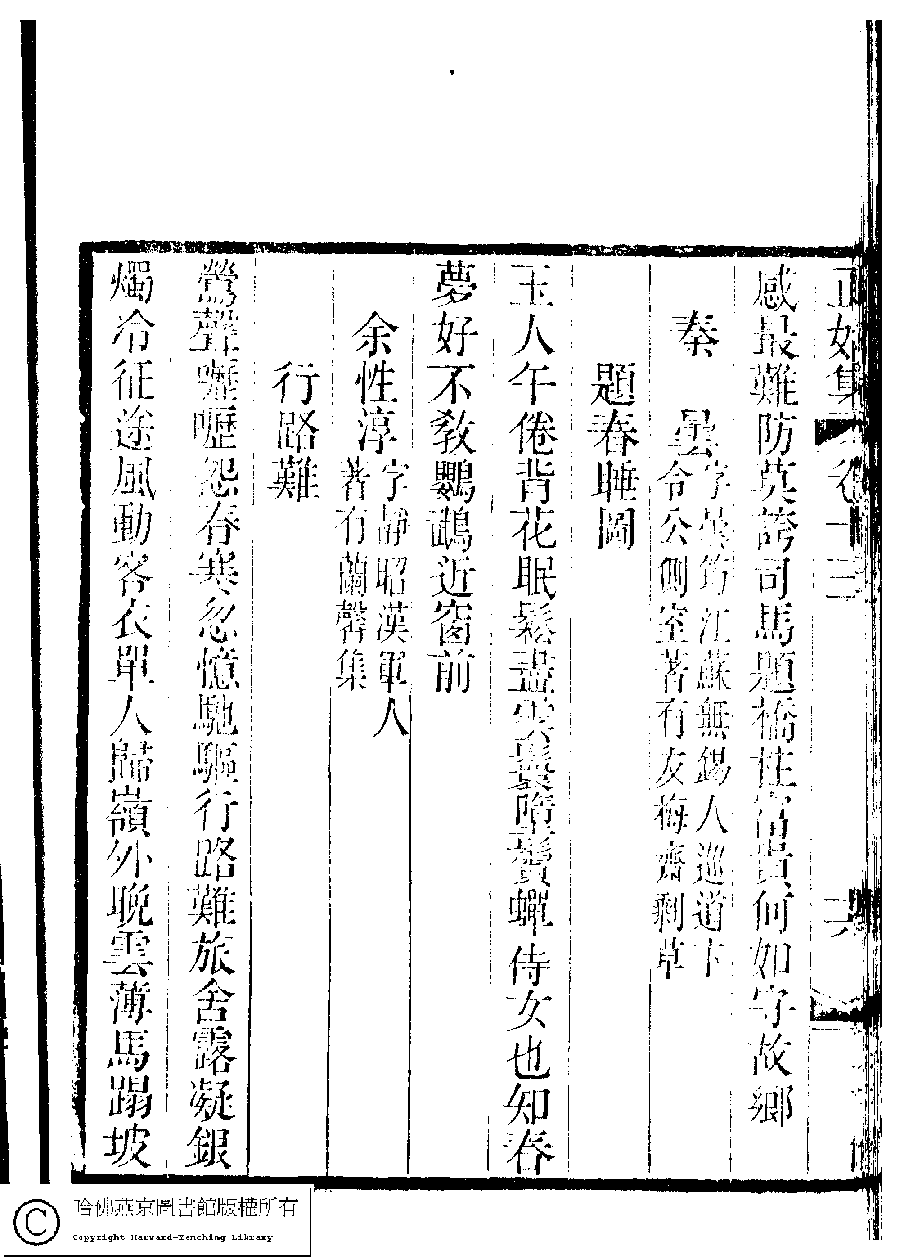 正始集 卷十三 六
感最難防莫誇司馬題橋柱富貴何如守故鄉
秦曇
字曇筠江蘇無錫人巡道卞
令公側室著有友梅齋剩草
題春睡圖
玉人午倦背花眠鬆盡雲鬟墮鬢蟬侍女也知春
夢好不教鸚鵡近窗前
余性淳
字靜昭漢軍人
著有蘭馨集
行路難
鶯聲嚦嚦怨春寒忽憶馳驅行路難旅舍露凝銀
燭冷征途風動客衣單人歸嶺外晚雲薄馬蹋坡
哈佛燕京圖書館版權所有
Copyright Harvard-Yenching Library